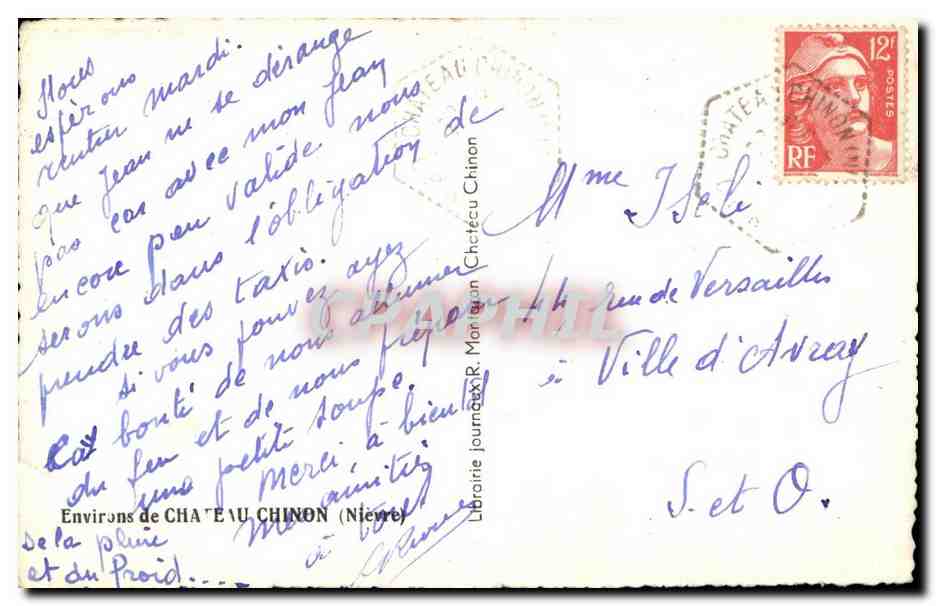 Nous
espérons
rentrer mardi.
que Jean ne se dérange
pas car avec mon Jean
encore peu valide nous
serons dans l'obligation de
prendre des taxis.
Si vous pouvez ayez
la bonté de nous allumer
du feu et de nous préparer
une petite soupe.
Merci, à bientôt
Mes amitiés
à tous
De la pluie
et du froid....
Environs de CHATEAU CHINON (Nièvre)
Librairie journaux R. Montaron Chatecu Chinon
CHATEAU CHINON
CHATEAU CHINON
12F
POSTES
RF
Mme Iseli
44 rue de Versailles
à Ville d'Avray
S. et O.
CPAPHIL